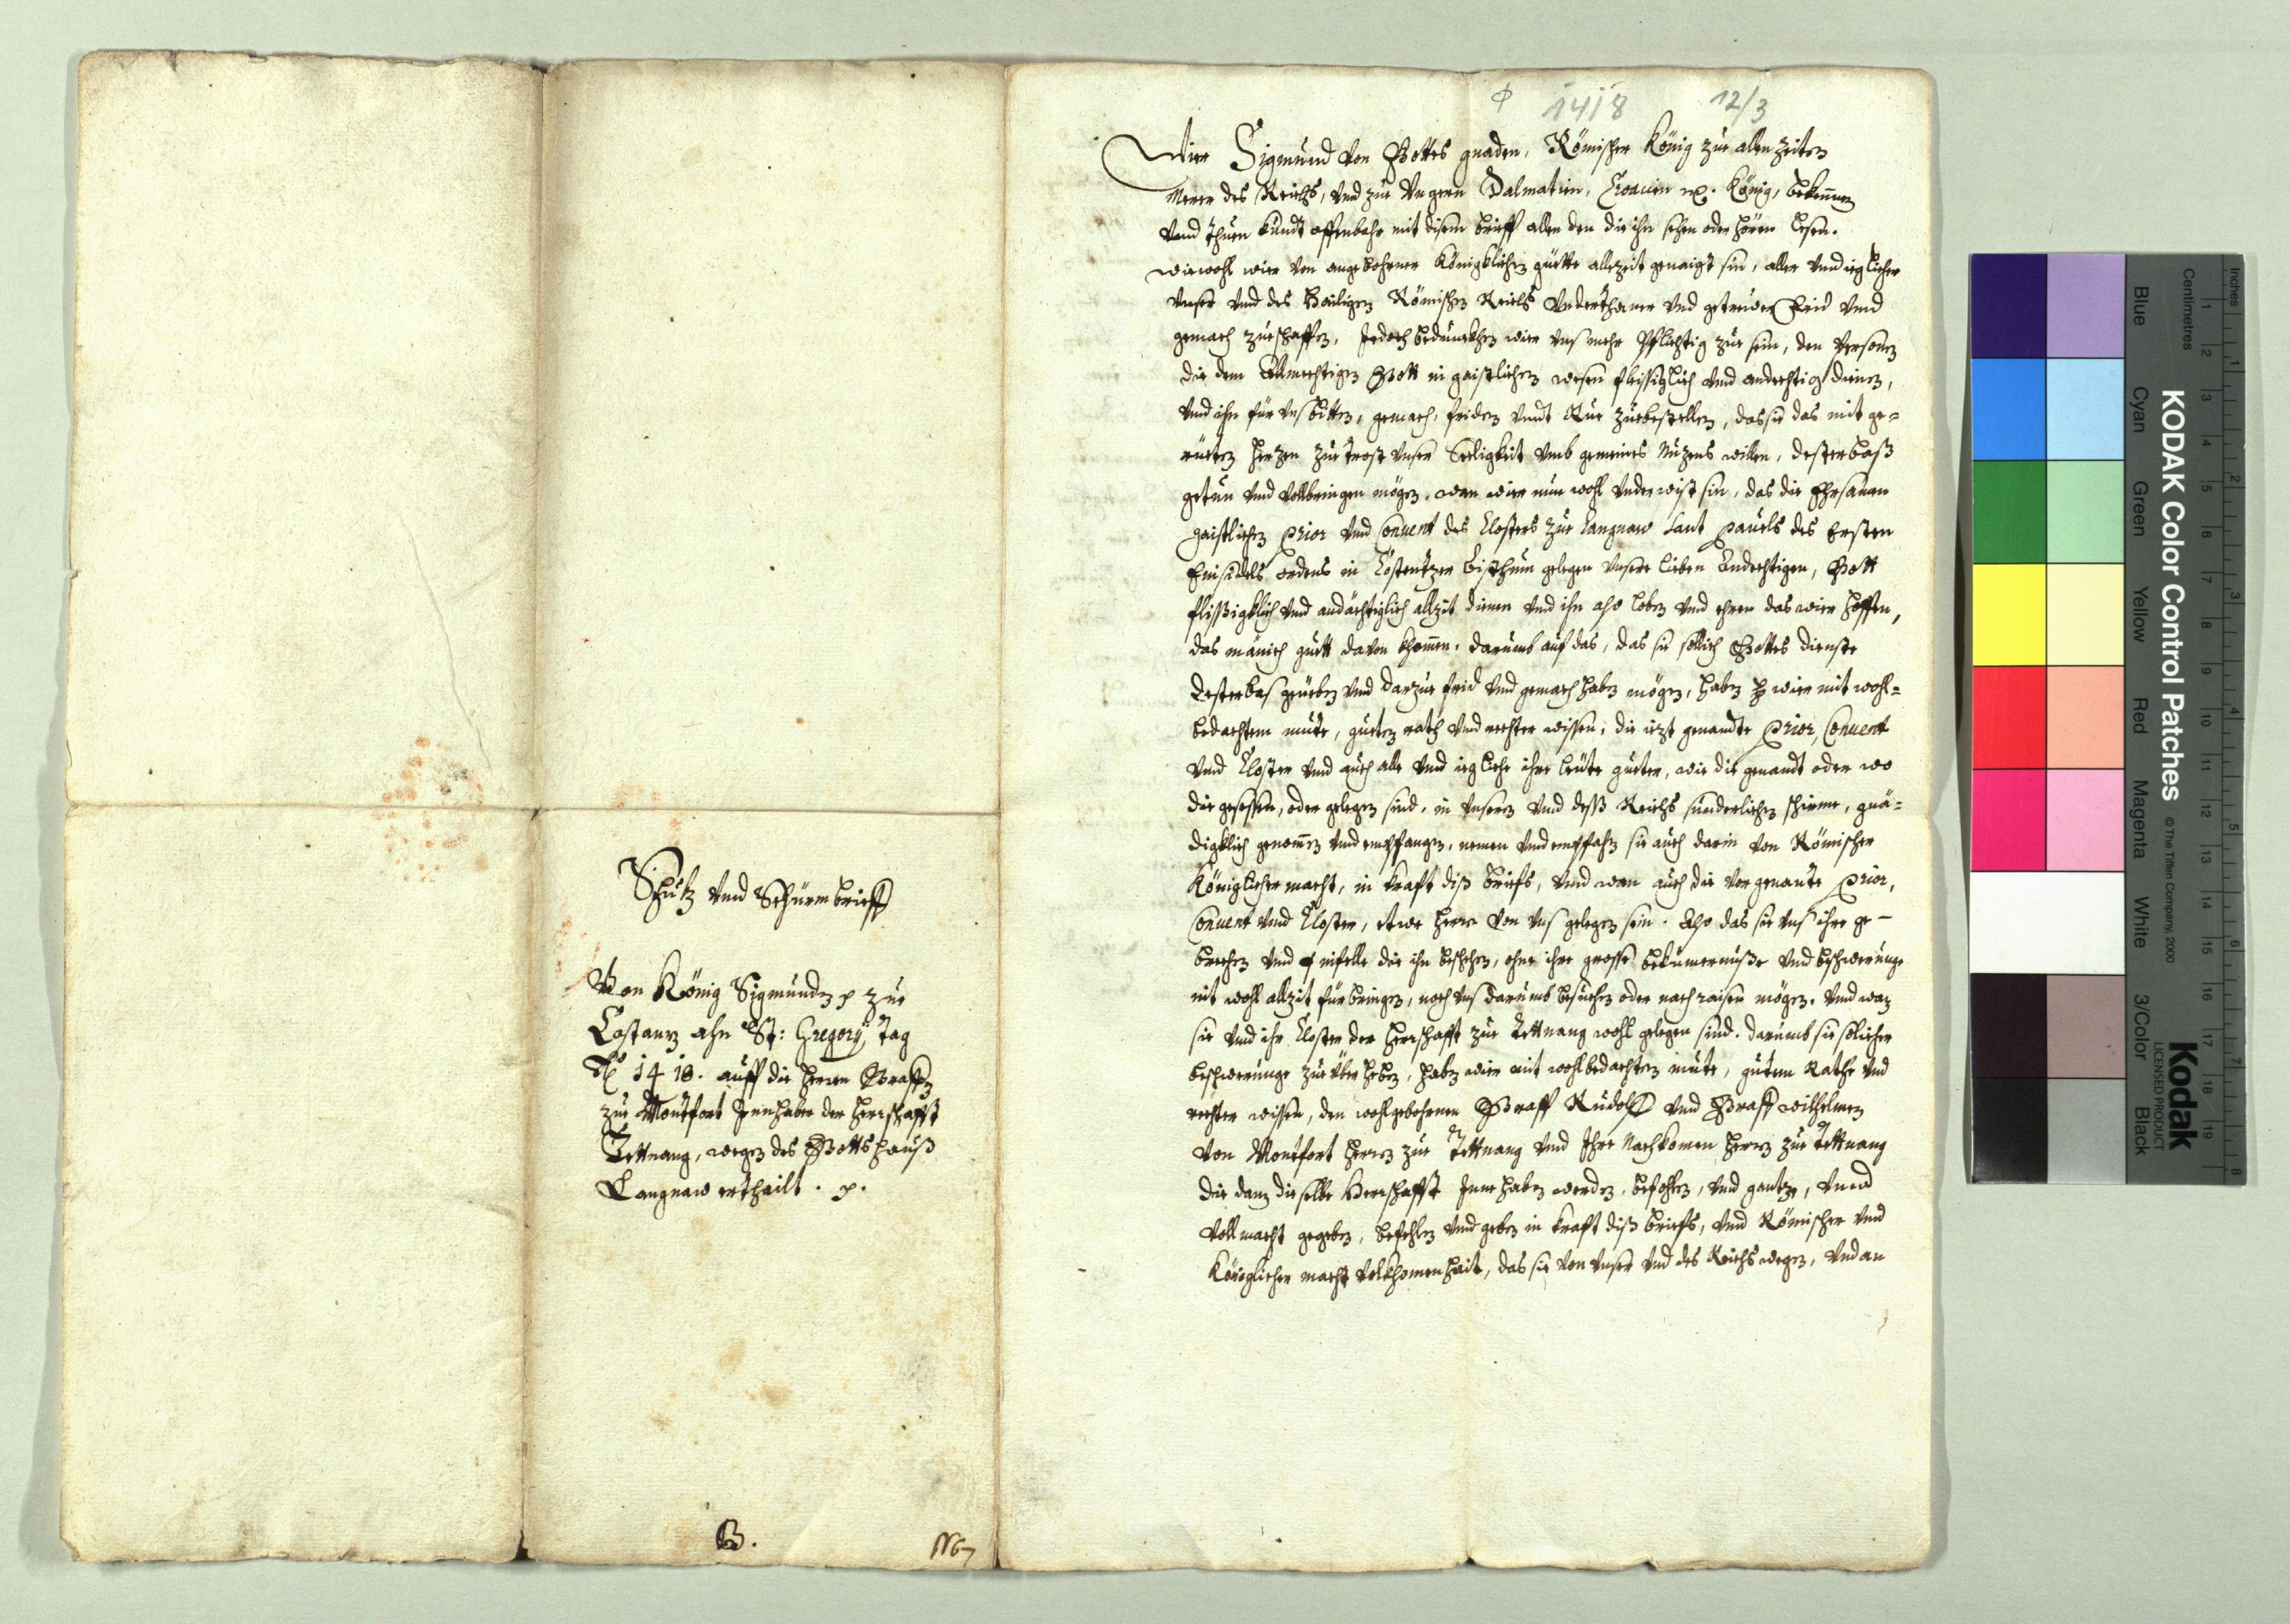 Schutz vnd Schürmbrieff
Von König Sigmunden p zue
Costanz ahn St: Gregorÿ tag
Ao 1418. auff die herren Graffen
zue Montfort Jnnhaber der herrschafft
Tettnang, wegen des Gottshauß
Langnaw ertheilt. p.
B.
N6
1418 12/3
Wier Sigmund von Gottes gnaden, Römischer König zue allen zeiten
Merer des Reichs, vnd zue Vngern Dalmatien, Croacien König, bekennen
vnd thuen kundt offenbahr mit disem brieff allen den die ihn sehen oder hören lesen.
wiewohl wier von angebohrner Königklichen güette allezeit genaigt sin, aller vnd ieglicher
vnser vnd des Heiligen Römischen Reichs Vnderthaner vnd getrewen frid vnd
gemach zueschaffen, Jedoch bedunckhen wier vns mehr Pflichtig zue sein, den Personen
die dem Allmechtigen Gott in gaistlichen wesen fleissiglich vnd andechtig dienen,
vnd ihn für vns bitten, gemach, friden vnndt Rue zuebestellen, das sie das mit ge-
rueten herzen zue trost vnser Seeligkeit vmb gemeines Nuzens willen, desterbaß
getun vnd vollbringen mögen, wan wier nun wohl vnderwist sin, das die Ehrsamen
gaistlichen Prior vnd Conuent des Closters zue Langnaw sant Pauels des Ersten
Einsidels ordens in Costentzer bisthum gelegen vnsere lieben Andechtigen, Gott
flißigklich vnd andächtiglich allzit dienen vnd ihn also loben vnd ehren das wier hoffen,
das mänich guett davon khomen. darumb auf das, das sie sollich Gottes dienste
desterbas geüeben vnd darzue frid vnd gemach haben mögen, haben wier mit wohl-
bedachtem muete, gueten rath vnd rechter wissen, die iezt genandte Prior, Conuent
vnd Closter vnd auch alle vnd iegliche ihre leüte gueter, wie die genandt oder wo
die gesessen, oder gelegen sind, in vnseren vnd deß Reichs sunderlichen schirme, gnä-
digklich genomen vnd empfangen, nemen vnd empfahen sie auch darin von Römischer
Königlicher macht, in krafft diß briefs, vnd wan auch die vorgenante Prior,
Conuent vnd Closter, etwe ferre von vns gelegen sein. Also das sie vns ihre ge-
brechen vnd infelle die ihn beschehen, ohne ihre grosse bekümernuße vnd beschwerunge
nit wohl allzit fürbringen, noch vns darumb besuechen oder nach raisen mögen. vnd wan
sie vnd ihr Closter der herrschafft zue Tettnang wohl gelegen sind. darumb sie solicher
beschwerunge zueüberheben, haben wier mit wohlbedachten muete, gutem Rathe vnd
rechter wissen, den wohlgebohrnen Graff Rudolff vnd Graff wilhelmen
von Montfort herren zue Tettnang vnd Ihre Nachkomen herren zue Tettnang
die dan dieselbe Herrschafft Jnne haben werden, befohlen, vnd gantze, vnnd
vollmacht gegeben, befehlen vnd geben in krafft diß briefs, vnd Römischer vnd
Königlicher macht volkhomenhait, das sie von vnser vnd des Reichs wegen, vnd an